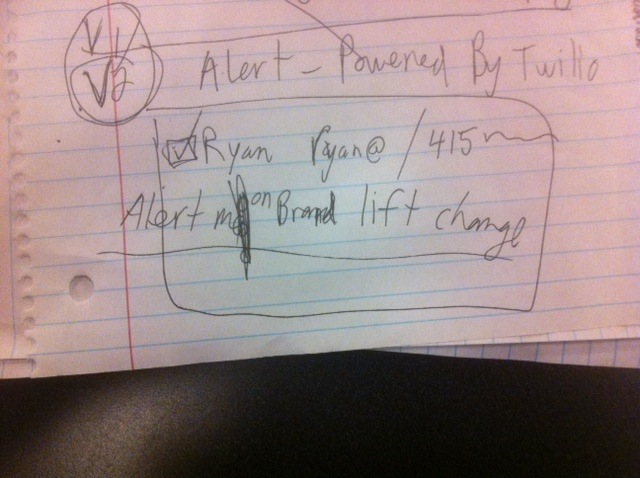 V1
V2
Alert - Powered By Twilio
Ryan ryan@ / 415
Alert me on Brand lift change